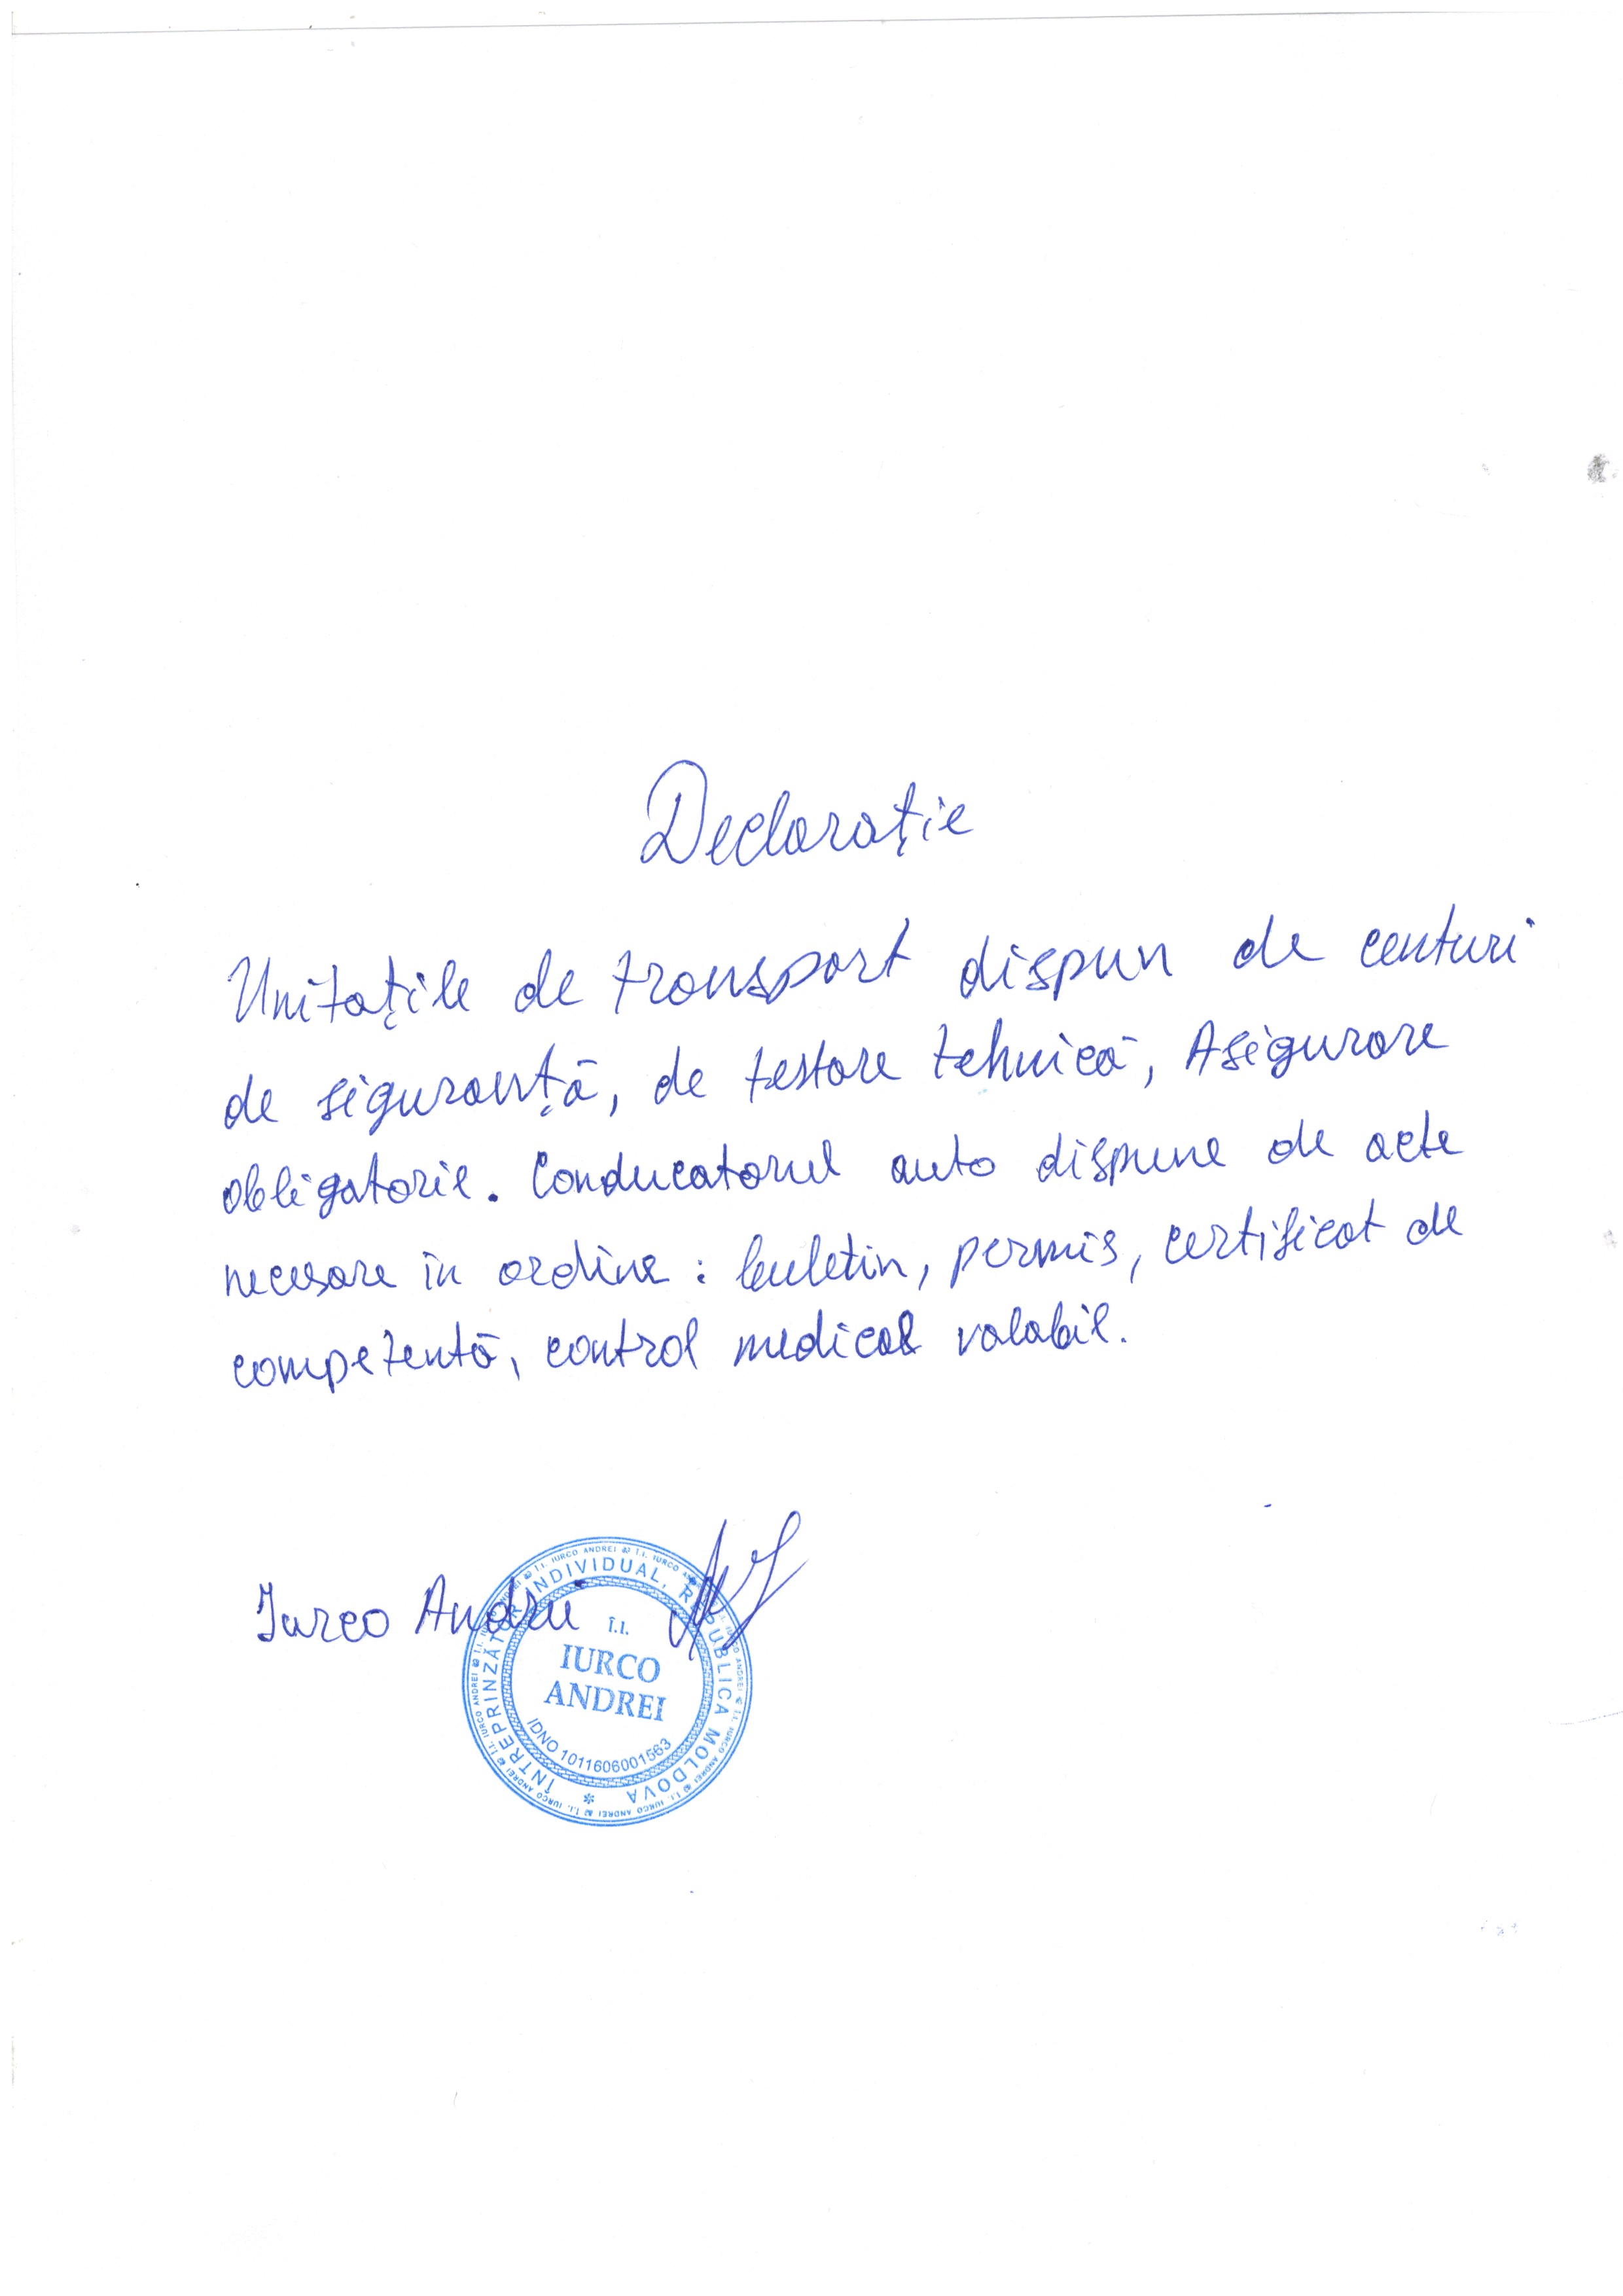 Declarație
Unitațile de transport dispun de centuri
de siguranță, de testare tehnică, Asigurare
obligatorie. Conducatorul auto dispune de acte
necesare în ordine : buletin, permis, certificat de
competentă, control medical valabil.
Iurco Andrei
ÎNTREPRINZĂTOR INDIVIDUAL, REPUBLICA MOLDOVA *
Î.I.
IURCO
ANDREI
IDNO 1011606001563